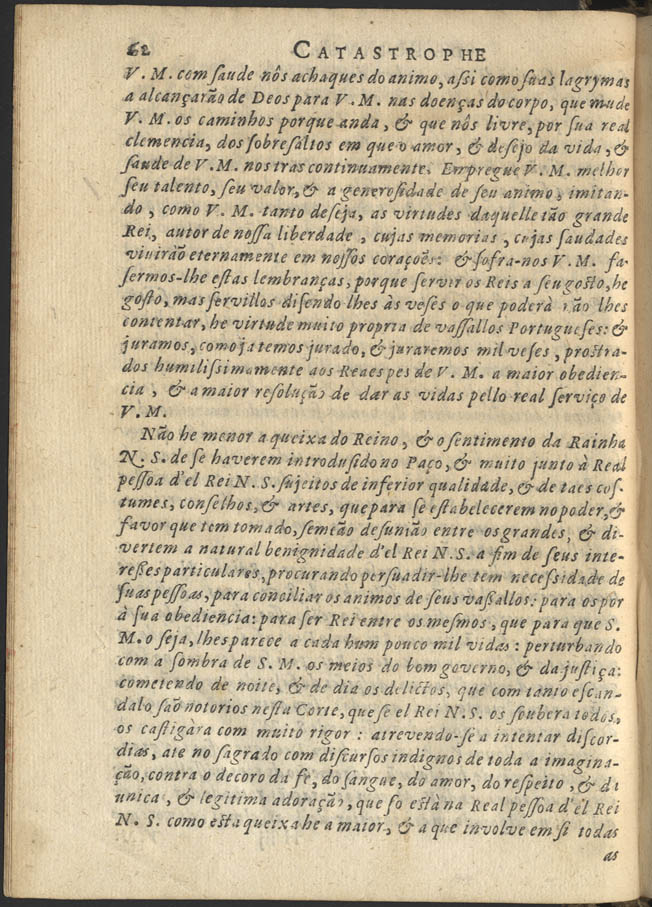 62 CATASTROPHE
V. M. com saude nôs achaques do animo, assi como suas lagrymas
a alcançarão de Deos para V. M. nas doenças do corpo, que mude
V. M. os caminhos porque anda, & que nôs livre, por sua real
clemencia, dos sobresaltos em que o amor, & desejo da vida, &
saude de V. M. nos tras continuamente. Empregue V. M. melhor
seu talento, seu valor, & a generosidade de seu animo, imitan-
do, como V. M. tanto deseja, as virtudes daquelle tão grande
Rei, autor de nossa liberdade, cujas memorias, cujas saudades
vivirão eternamente em nossos coraçoẽs: & sofra-nos V. M. fa-
sermos-lhe estas lembranças, porque servir os Reis a seu gosto, he
gosto, mas servillos disendo lhes às veses o que poderà não lhes
contentar, he virtude muito propria de vassallos Portugueses: &
juramos, como ja temos jurado, & juraremos mil veses, prostra-
dos humilissimamente aos Reaes pes de V. M. a maior obedien-
cia, & a maior resolução de dar as vidas pello real serviço de
V. M.
Não he menor a queixa do Reino, & o sentimento da Rainha
N. S. de se haverem introdusido no Paço, & muito junto à Real
pessoa d'el Rei N. S. sujeitos de inferior qualidade, & de taes cos-
tumes, conselhos, & artes, que para se estabelecerem no poder, &
favor que tem tomado, semeão desunião entre os grandes, & di-
vertem a natural benignidade d'el Rei N. S. a fim de seus inte-
resses particulares, procurando persuadir-lhe tem necessidade de
suas pessoas, para conciliar os animos de seus vassallos: para os por
à sua obediencia: para ser Rei entre os mesmos, que para que S.
M. o seja, lhes parece a cada hum pouco mil vidas: perturbando
com a sombra de S. M. os meios do bom governo, & da justiça:
cometendo de noite, & de dia os delictos, que com tanto escan-
dalo são notorios nesta Corte, que se el Rei N. S. os soubera todos,
os castigàra com muito rigor: atrevendo-se a intentar discor-
dias, ate no sagrado com discursos indignos de toda a imagina-
ção, contra o decoro da fe, do sangue, do amor, do respeito, & da
unica, & legitima adoração, que so està na Real pessoa d'el Rei
N. S. como esta queixa he a maior, & a que involve em si todas
as